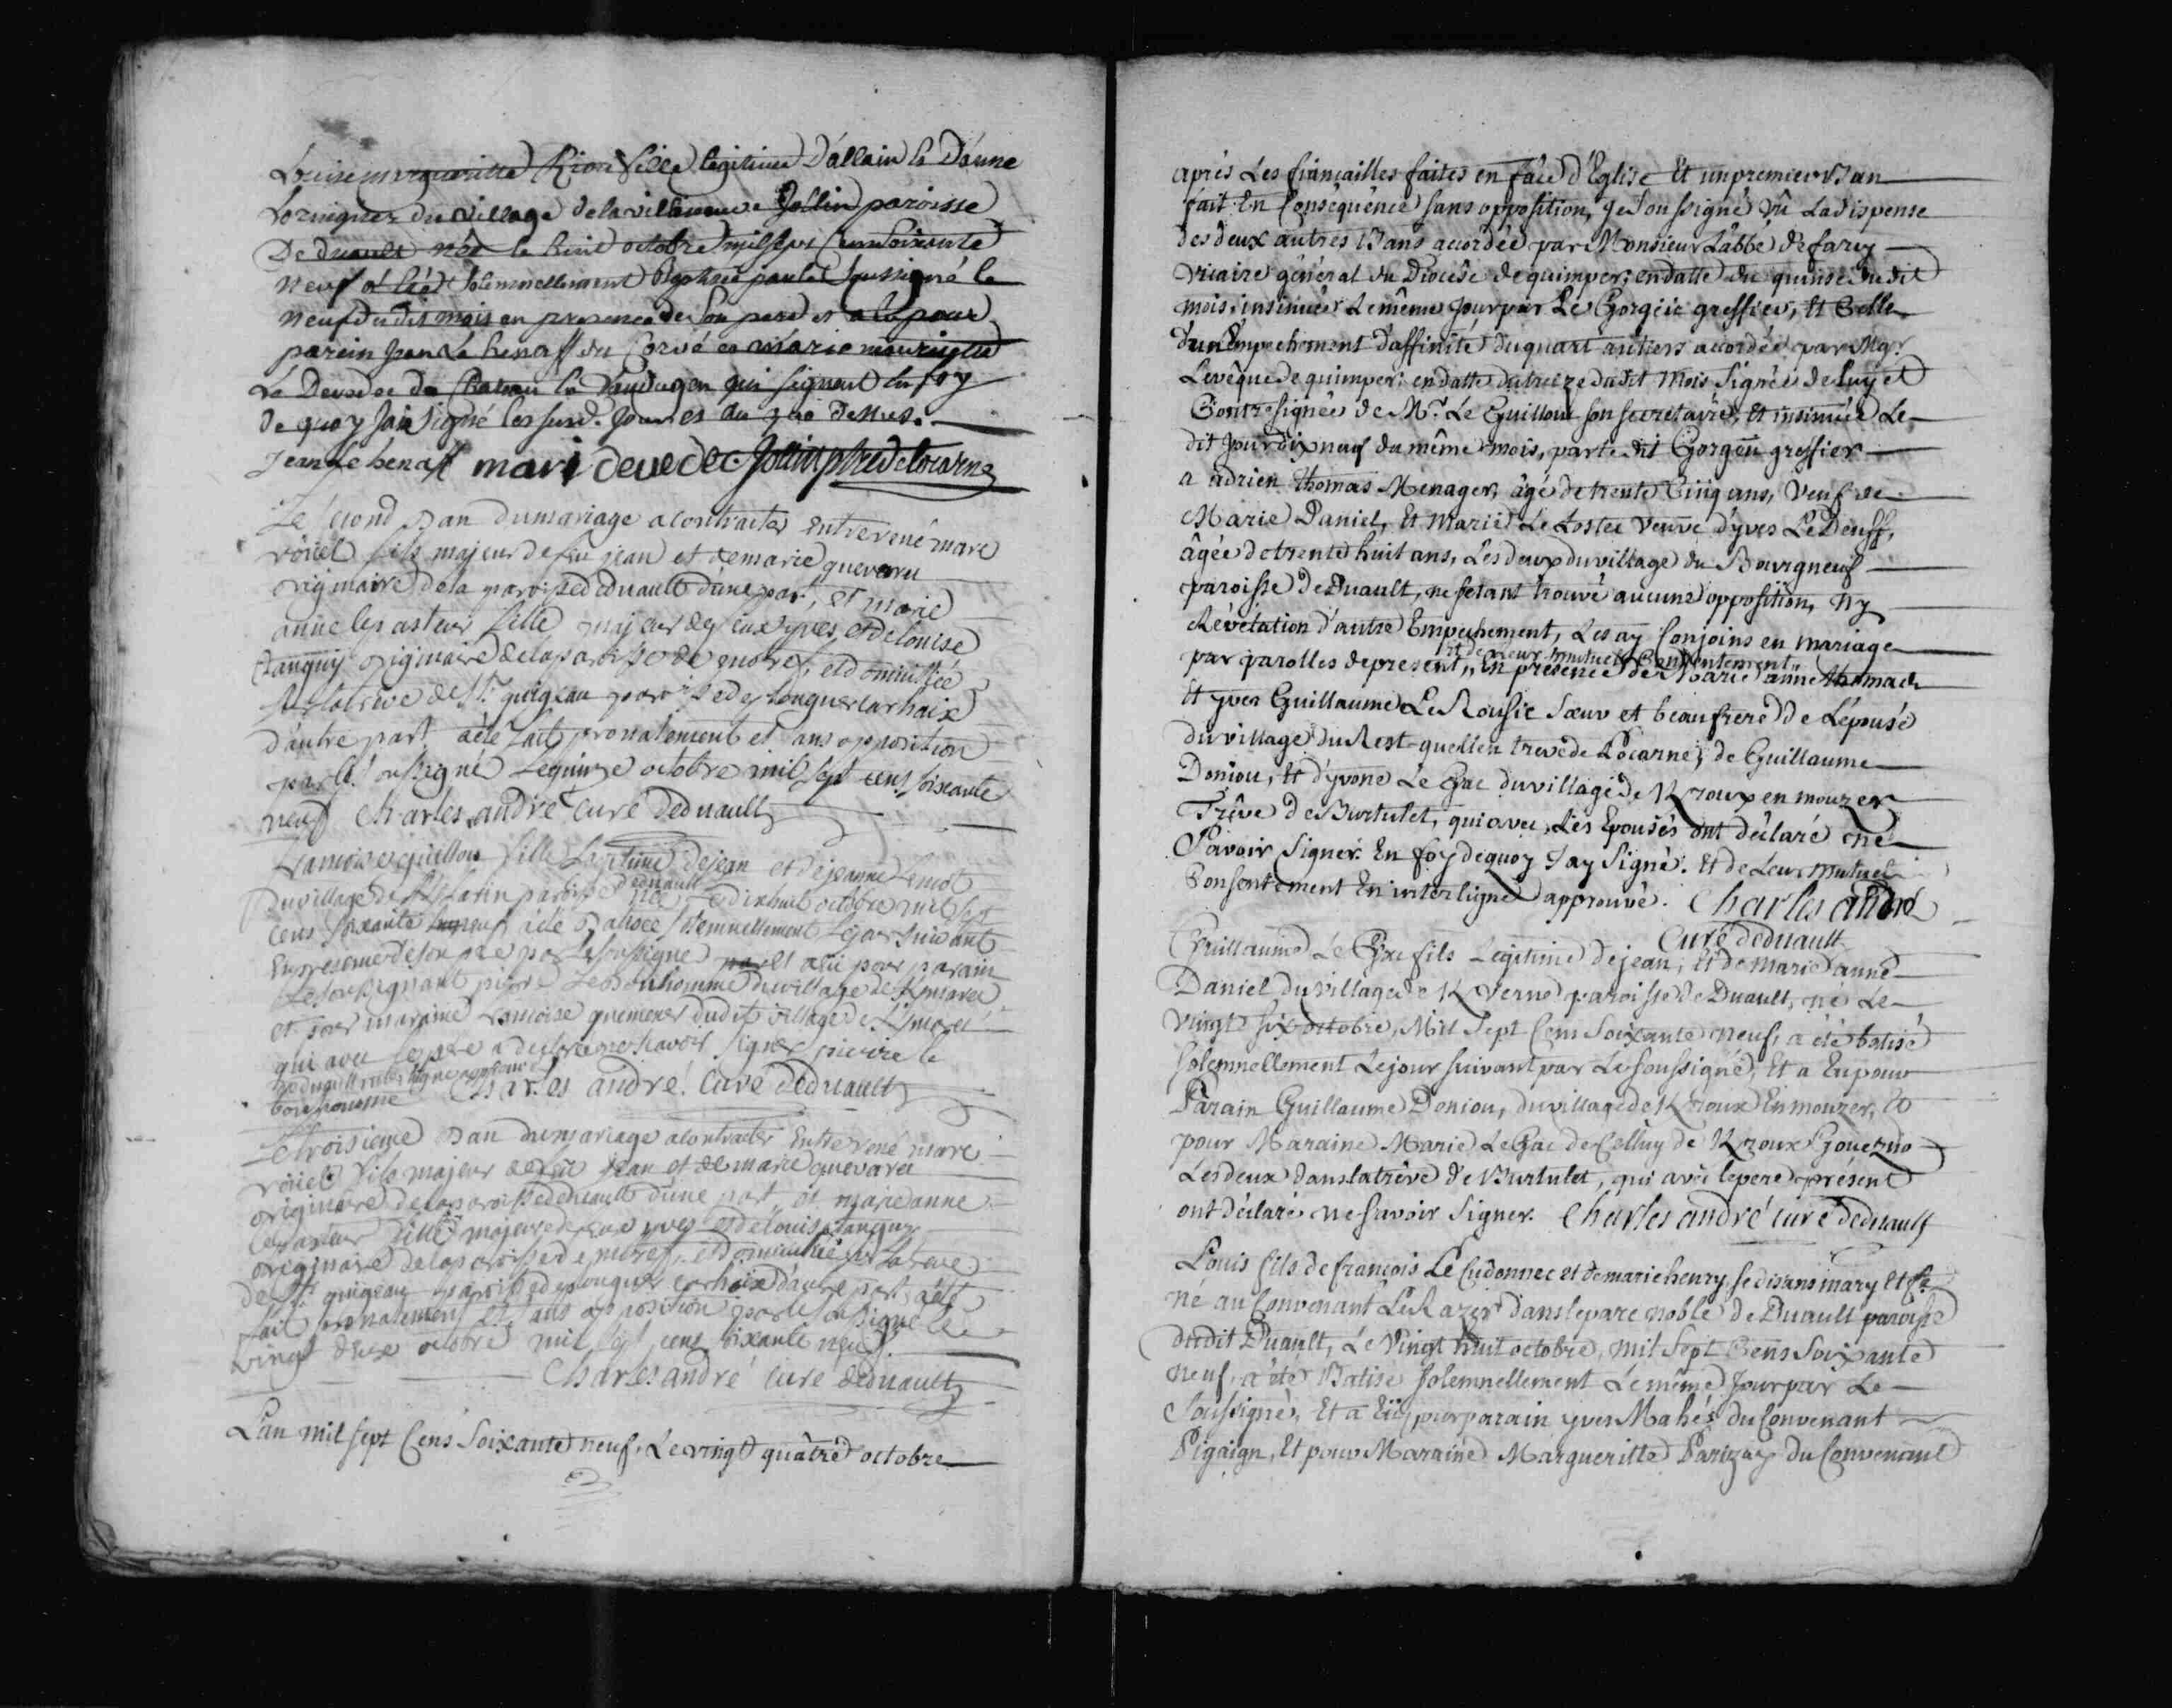 Louise margueritte Riou fille legitime d'allain le d'anne
Lozuiguez du village de la villeneuve Jollin paroisse
De duault née le huit octobre mil sept cens soixante
neuf a été solemnellement Baptisée par le soussigné le
neuf du dit mois en presence de son pere et a eu pour
parein Jean Le henaff du Corvé et marie
Le Devedec du Chateau la qui signent en foy
de quoy jai signé les susd. jour et an que dessus.
Jean Le henaff mari devedec Jollin ptre de locarn
Le second Ban du mariage a contracter entre rené marc
fils majeur de feu jean et de marie quevarec
originaire de la paroisse de duault d'une part, et marie
anne le pasteur fille majeur de feux yves, et de louise
tanguy originaire de la paroisse de et domiciliée
de St. quigeau paroisse de plouguer carhaix
d'autre part a été fait pronalement et sans opposition
par le soussigné le quinze octobre mil sept cens soixante
neuf Charles andré curé de duault
fille Legitime de jean et de jeanne
du village de paroisse de duault née le dix huit octobre mil sept
cens soixante neuf a été Batisée solemnellement le jour suivant
En presence de son pere par le soussigné et a eü pour parain
Le soussignant pierre Le Bonhomme du village de
et pour maraine dudit village de
qui avec le pere a declaré ne savoir signer pierre le
de duault interligne approuvé
bonhomme Charles andré. Curé de duault
Le troisieme Ban du mariage a contracter Entre rené marc
fils majeur de feu jean et de marie quevarec
originaire de la paroisse de duault d'une part, et marie anne
le pasteur fille majeure de feux yves et de louise tanguy
originaire de la paroisse de et domiciliée
de St. quigeau paroisse de plouguer carhaix d'autre part a été
fait pronalement et sans opposition par le soussigné le
vingt deux octobre mil sept cens soixante neuf.
Charles andré curé de duault
L'an mil sept Cens Soixante neuf, Le vingt quâtre octobre
aprés Les fiançailles faites en fâce d'Eglise Et un premier Ban
fait En Conséquence sans opposition, je Soussigné vû La dispense
des deux autres Bans accordée par Monsieur L'abbé de farcy
vicaire général du Diocèse de quimper, en datte du quinse du dit
mois, insinuée Le même jour par Le Gorgeü greffier, Et Celle
d'un Empechement d'affinité du quart au tiers accordée par Mgr.
L'evêque de quimper, en datte du treize dudit Mois Signée de Luy et
Contresignée de Mr. Le Guillou son secretaire, Et insinuée Le
dit jour dix neuf du même mois, par le dit Gorgeü greffier
a adrien thomas Menager, âgé de trente Cinq ans, Veuf de
Marie Daniel, Et Marie Le Lostec veuve d'yves Le Deuff,
âgée de trente huit ans, Les deux du village du Bourgneuf
paroisse de Duault, ne s'etant trouvé aucune opposition, Ny
Révélation d'autre Empechement, Les ay Conjoins en mariage
et de Leur mutuel Consentement
par parolles de present, En présence de Marie anne thomas
Et yves Guillaume Le Rousic Sœur et beaufrere de L'épousé
du village du Rest-quellen treve de Locarne, de Guillaume
Doniou, Et d'yvone Le Gac du village de Kroux en mouzer
Trêve de Burtulet, qui avec Les Epousés ont déclaré ne
Savoir signer. En foy de quoy J'ay Signé. Et de Leur mutuel
Consentement En interligne approuvé. Charles andré
Curé de duault
Guillaume Le fils Legitime de jean, Et de Marie anne
Daniel du village de K Verne paroisse de Duault, né Le
vingt six octobre, Mil Sept Cens Soixante neuf, a été batisé
solemnellement Le jour suivant par Le soussigné, Et a Eu pour
Parain Guillaume Doniou, du village de Kroux En mouzer, Et
pour Maraine Marie Le Gac de Celluy de Kroux
Les deux dans la trêve de Burtulet, qui avec le pere présent
ont déclaré ne savoir signer. Charles andré curé de duault
Louis fils de françois Le Cudonnec et de marie henry, se disans mary Et fe.
né au Convenant Le Razer dans le parc noble de Duault paroisse
dudit Duault, Le Vingt huit octobre, mil Sept Cens Soixante
neuf, a été Batisé Solemnellement Le même Jour par Le
Soussigné, Et a Eü pour parain yves Mahé du Convenant
Pigaign, Et pour Maraine Margueritte Parizay du Convenant